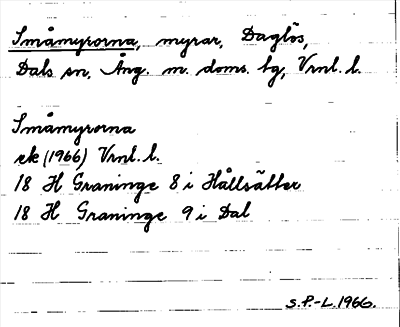 Småmyrorna, myrar, Daglös,
Dals sn, Ång. m. doms. lg, Vrnl. l.
Småmyrorna
ek (1966) Vrnl. l.
18 H Graninge 8 i Hållsätter
18 H Graninge 9 i Dal
S.P.-L. 1966.